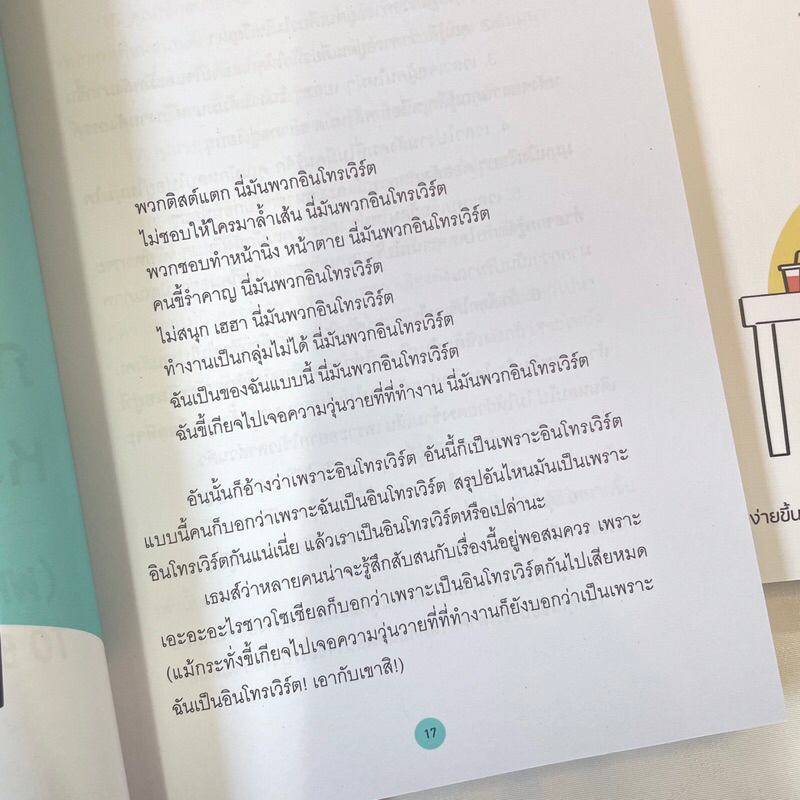 พวกติสต์แตก นี่มันพวกอินโทรเวิร์ต
ไม่ชอบให้ใครมาล้ำเส้น นี่มันพวกอินโทรเวิร์ต
พวกชอบทำหน้านิ่ง หน้าตาย นี่มันพวกอินโทรเวิร์ต
คนขี้รำคาญ นี่มันพวกอินโทรเวิร์ต
ไม่สนุก เฮฮา นี่มันพวกอินโทรเวิร์ต
ทำงานเป็นกลุ่มไม่ได้ นี่มันพวกอินโทรเวิร์ต
ฉันเป็นของฉันแบบนี้ นี่มันพวกอินโทรเวิร์ต
ฉันขี้เกียจไปเจอความวุ่นวายที่ที่ทำงาน นี่มันพวกอินโทรเวิร์ต
อันนั้นก็อ้างว่าเพราะอินโทรเวิร์ต อันนี้ก็เป็นเพราะอินโทรเวิร์ต
แบบนี้คนก็บอกว่าเพราะฉันเป็นอินโทรเวิร์ต สรุปอันไหนมันเป็นเพราะ
อินโทรเวิร์ตกันแน่เนี่ย แล้วเราเป็นอินโทรเวิร์ตหรือเปล่านะ
เธมส์ว่าหลายคนน่าจะรู้สึกสับสนกับเรื่องนี้อยู่พอสมควร เพราะ
เอะอะอะไรชาวโซเชียลก็บอกว่าเพราะเป็นอินโทรเวิร์ตกันไปเสียหมด
(แม้กระทั่งขี้เกียจไปเจอความวุ่นวายที่ที่ทำงานก็ยังบอกว่าเป็นเพราะ
ฉันเป็นอินโทรเวิร์ต! เอากับเขาสิ!)
17
ง่ายขึ้น